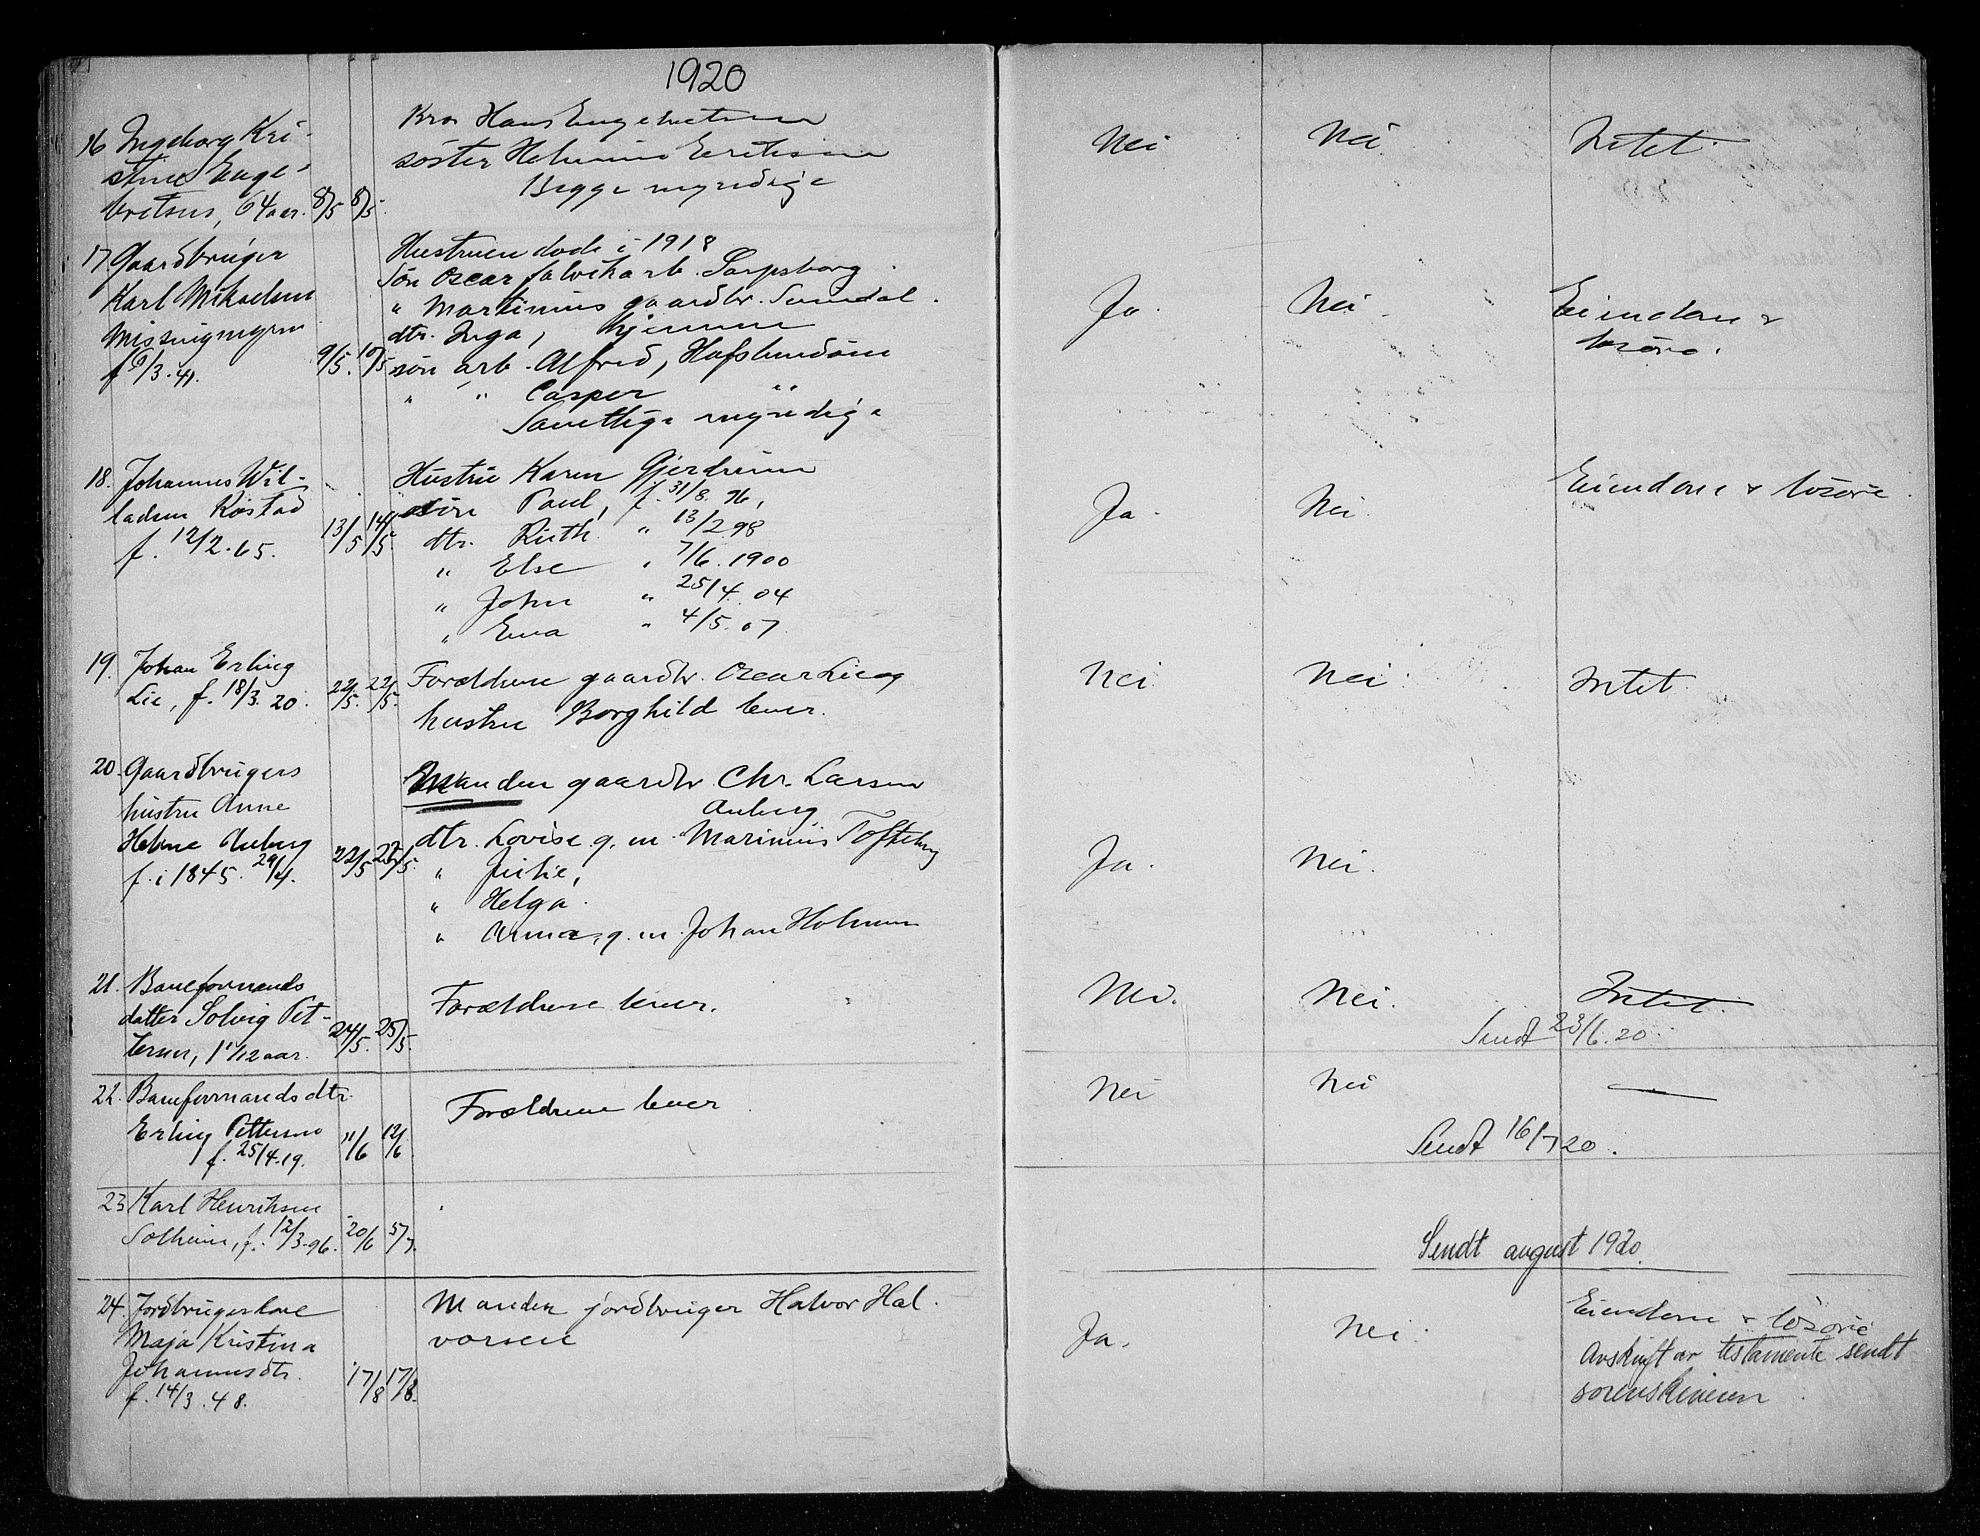 1920
16 Ingeborg Kri-
stine Enge-
bretsen, 64 aar. 8/5 8/5
Bror Hans Engebretsen
søster Helmine Eriksen
Begge myndige
Nei Nei Intet.
17. Gaardbruger
Karl Mikaelsen
Missingmyren
f 6/3.41. 9/5. 10/5
Hustruen døde i 1918
Søn Oscar fabrikarb. Sarpsborg.
" Martinius gaardbr. Sundal.
dtr. Inga, hjemme
søn arb. Alfred, Hafslundsøen
" " Casper " "
Samtlige myndige
Ja. Nei. Eiendom &
løsøre.
18. Johannes Wil-
ladsen Rostad
f. 12/2.65. 13/5 14/5
Hustru Karen Gjerdrum
søn Paul, f. 31/8. 96,
dtr. Ruth " 13/2 98
" Else " 7/6. 1900
" John " 25/4. 04
" Ewa " 4/5. 07
Ja. Nei. Eiendom & løsøre.
19. Johan Erling
Lie, f. 18/3. 20. 22/5. 22/5.
Forældrene gaardbr. Oscar Lie og
hustru Borghild lever.
Nei. Nei. Intet.
20. Gaardbrugers
hustru Anne
Helene Auberg
f. i 1845. 29/4. 22/5 22/5.
Manden gaardbr. Chr. Larsen
Auberg,
dtr. Lovise g. m. Marinius Tofteberg
" Julie,
" Helga.
" Anna, g. m. Johan Holmen
Ja. Nei.
21. Baneformands
datter Solveig Pet-
tersen, 1 11/12 aar. 24/5. 25/5.
Forældrene lever.
Nei. Nei. Intet.
Sendt 23/6. 20.
22. Baneformands dtr.
Erling Pettersen
f. 25/4.19. 11/6 12/6
Forældrene lever
Nei Nei —
Sendt 16/7 20.
23 Karl Henriksen
Solheim, f. 12/3.96. 20/6 5/7.
Sendt august 1920.
24. Jordbrugerkone
Maja Kristina
Johannesdtr.
f. 14/3.48. 17/8 17/8.
Manden jordbruger Halvor Hal-
vorsen
Ja. Nei. Eiendom & løsøre
Avskrift av testamente sendt
sorenskriveren